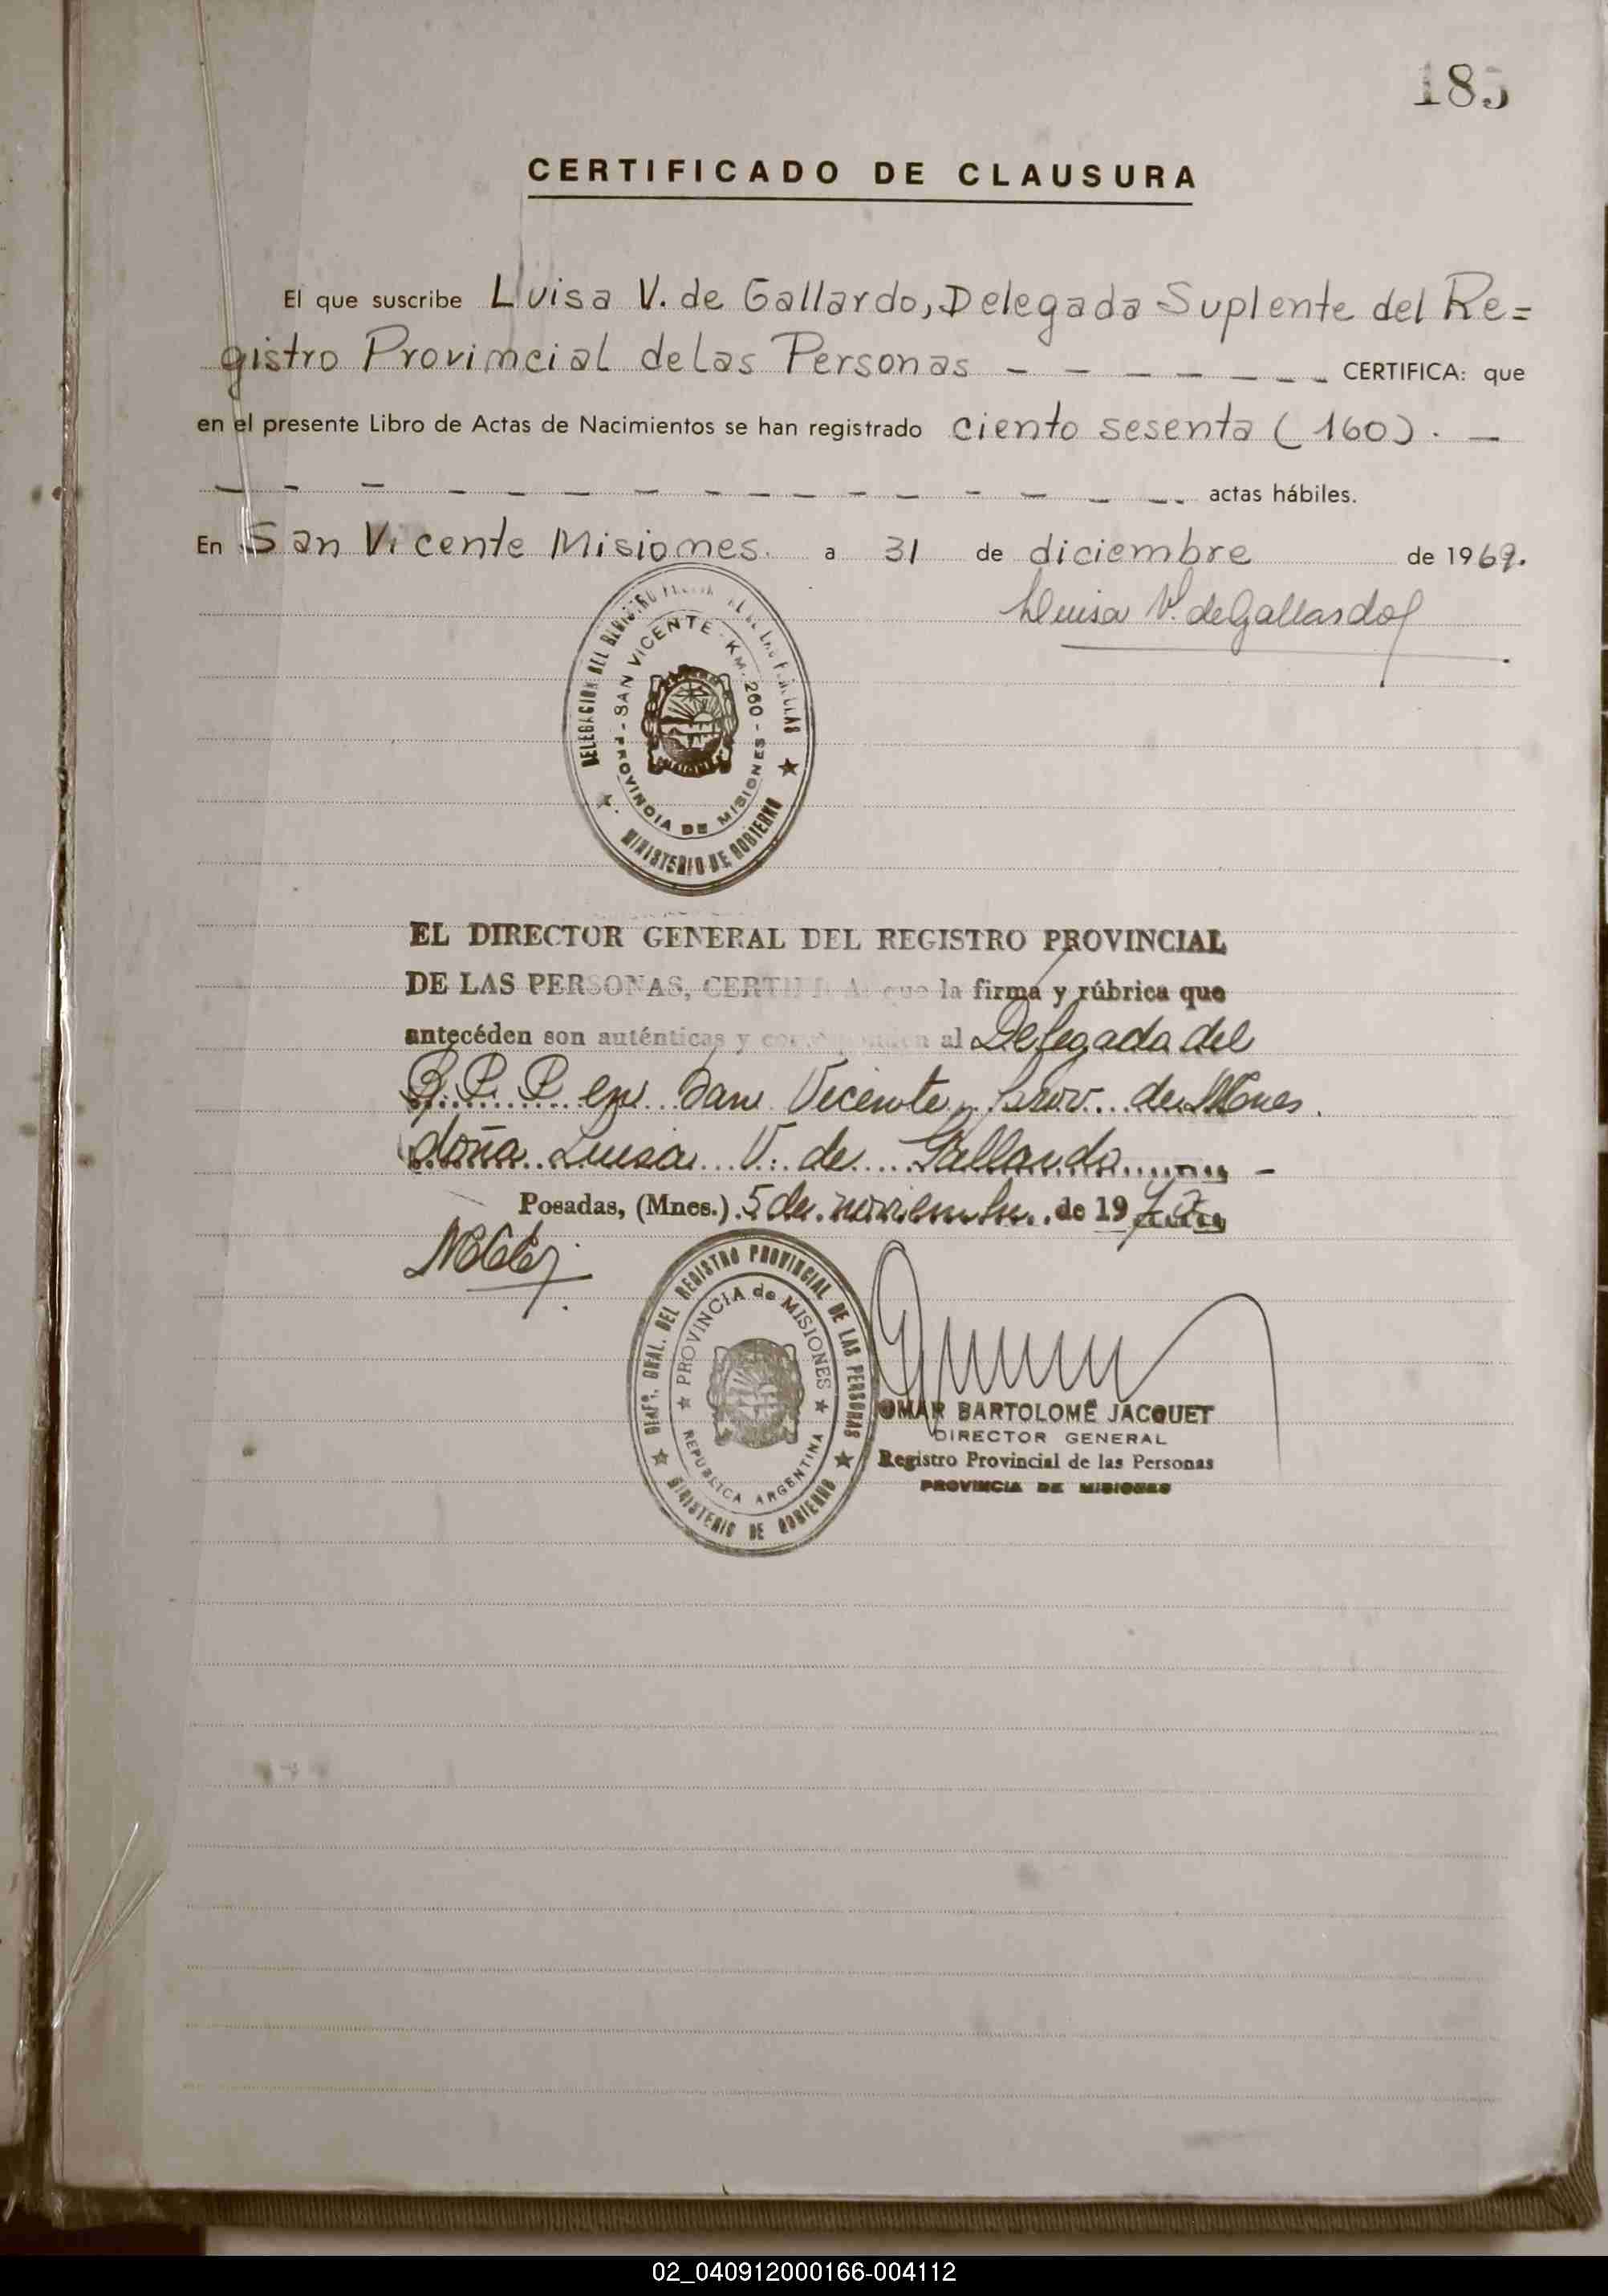 185
CERTIFICADO DE CLAUSURA
El que suscribe Luisa V. de Gallardo, Delegada Suplente del Re=
gistro Provincial de las Personas - - - - - - - CERTIFICA: que
en el presente Libro de Actas de Nacimientos se han registrado ciento sesenta (160). -
- - - - - - - - - - - - - - - - actas hábiles.
En San Vicente Misiones. a 31 de diciembre de 1969.
Luisa V. de Gallardo
DELEGACION DEL REGISTRO PROVINCIAL DE LAS PERSONAS
SAN VICENTE - KM. 260 -
PROVINCIA DE MISIONES
MINISTERIO DE GOBIERNO
EL DIRECTOR GENERAL DEL REGISTRO PROVINCIAL
DE LAS PERSONAS, CERTIFICA: que la firma y rúbrica que
antecéden son auténticas y corresponden al Delegada del
R. P. P en San Vicente, Prov. de Mnes
doña Luisa V. de Gallardo -
Posadas, (Mnes.) 5 de noviembre de 19
DIREC. GRAL. DEL REGISTRO PROVINCIAL DE LAS PERSONAS
PROVINCIA de MISIONES
REPUBLICA ARGENTINA
MINISTERIO DE GOBIERNO
OMAR BARTOLOMÉ JACQUET
DIRECTOR GENERAL
Registro Provincial de las Personas
PROVINCIA DE MISIONES
02_040912000166-004112